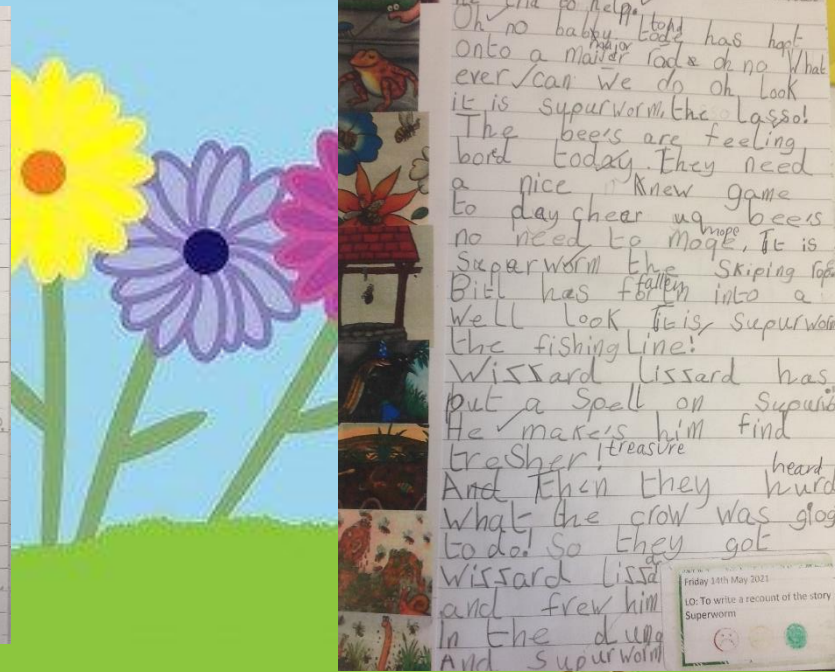 to help.
Oh no babby tode toad has hopt
onto a maider major rod & oh no What
ever can we do oh look
it is supurworm, the Lasso!
The bee's are feeling
bord today. They need
a nice knew game
to day chear up bee's
no need to moqe mope, It is
Superworm the skiping rope
Bitl has fallen into a
well look It is, supurworm
the fishing Line!
Wissard Lissard has
put a Spell on Supurw
He make's him find
tresher! treasure
And Then they hurd heard
What the crow was giog
to do! So they got
Wissard Lissard
and frew him
In the dung
And supurworm
Friday 14th May 2021
LO: To write a recount of the story
Superworm